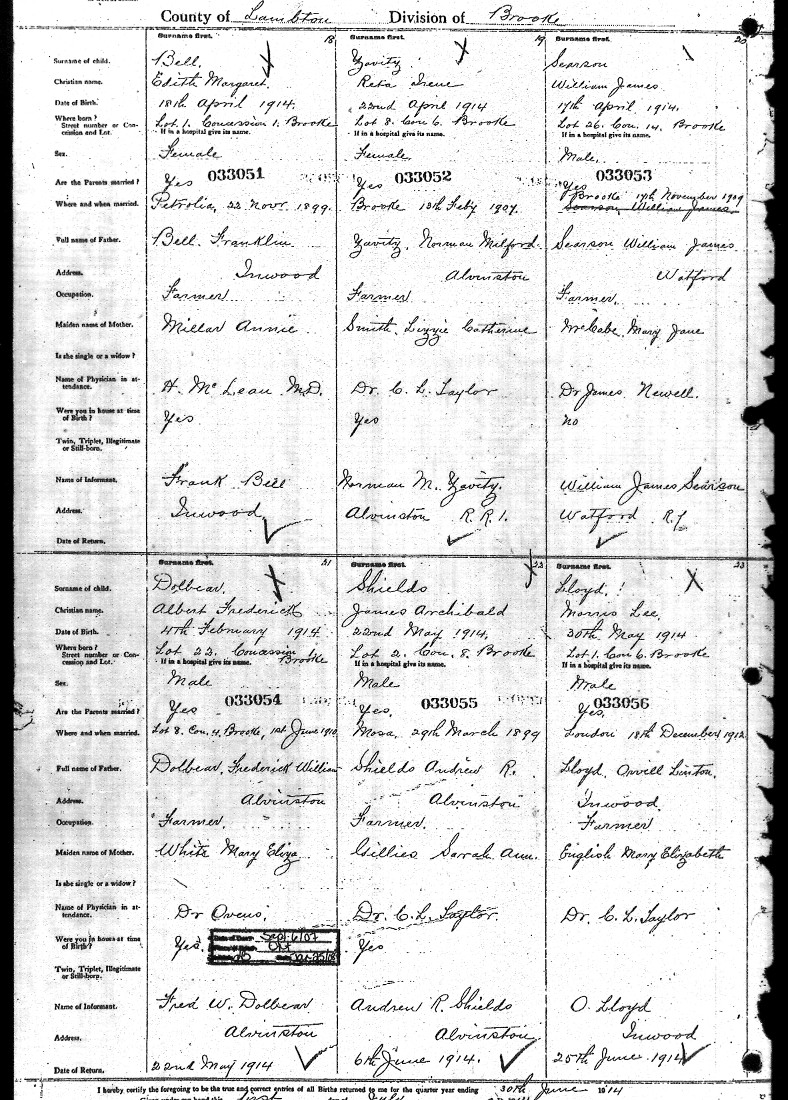 County of Lambton Division of Brooke
Surname first. 18 Surname first. 19 Surname first. 20
Surname of child. Bell. Zavitz Searson
Christian name. Edith Margaret. Reta Irene William James
Date of Birth. 18th April 1914. 22nd April 1914 17th April 1914.
Where born? Lot 1. Concession 1. Brooke Lot 8. Con 6. Brooke Lot 26. Con. 14. Brooke
Street number or Concession and Lot. If in a hospital give its name. If in a hospital give its name. If in a hospital give its name.
Sex. Female Female Male.
033051 033052 033053
Are the Parents married? Yes Yes Yes
Where and when married. Petrolia, 22 Novr. 1899. Brooke 13th Feby 1907. Brooke 17th November 1909
Searson William James
Full name of Father. Bell. Franklin Zavitz, Norman Milford. Searson William James
Address. Inwood Alvinston Watford
Occupation. Farmer Farmer Farmer.
Maiden name of Mother. Millar Annie Smith, Lizzie Catherine McCabe, Mary Jane
Is she single or a widow?
Name of Physician in attendance. H. McLean M.D. Dr. C. L. Taylor Dr James Newell.
Were you in house at time of Birth? Yes Yes no
Twin, Triplet, Illegitimate or Still-born.
Name of Informant. Frank Bell Norman M. Zavitz. William James Searson
Address. Inwood Alvinston R.R 1. Watford
Date of Return.
Surname first. 21 Surname first. 22 Surname first. 23
Surname of child. Dolbear, Shields Lloyd.
Christian name. Albert Frederick James Archibald Morris Lee.
Date of Birth. 4th February 1914 22nd May 1914, 30th May 1914
Where born? Lot 22. Concession 1. Brooke Lot 2. Con. 8. Brooke Lot 1. Con 6. Brooke
Street number or Concession and Lot. If in a hospital give its name. If in a hospital give its name. If in a hospital give its name.
Sex. Male Male Male
033054 033055 033056
Are the Parents married? Yes Yes, Yes,
Where and when married. Lot 8. Con. 4. Brooke, 1st June 1910 Mosa, 29th March 1899 London 18th December 1912
Full name of Father. Dolbear, Frederick William Shields Andrew R. Lloyd, Orvill Linton.
Address. Alvinston Alvinston Inwood.
Occupation. Farmer. Farmer. Farmer
Maiden name of Mother. White Mary Eliza Gillies Sarah Ann. English Mary Elizabeth
Is she single or a widow?
Name of Physician in attendance. Dr Ovens, Dr. C. L. Taylor Dr. C. L. Taylor
Were you in house at time of Birth? Yes. Sept 6/07 Ont Yes
Twin, Triplet, Illegitimate or Still-born.
Name of Informant. Fred W. Dolbear Andrew R. Shields O. Lloyd
Address. Alvinston Alvinston Inwood
Date of Return. 22nd May 1914 6th June 1914. 25th June 1914
I hereby certify the foregoing to be the true and correct entries of all Births returned to me for the quarter year ending 30th June 1914